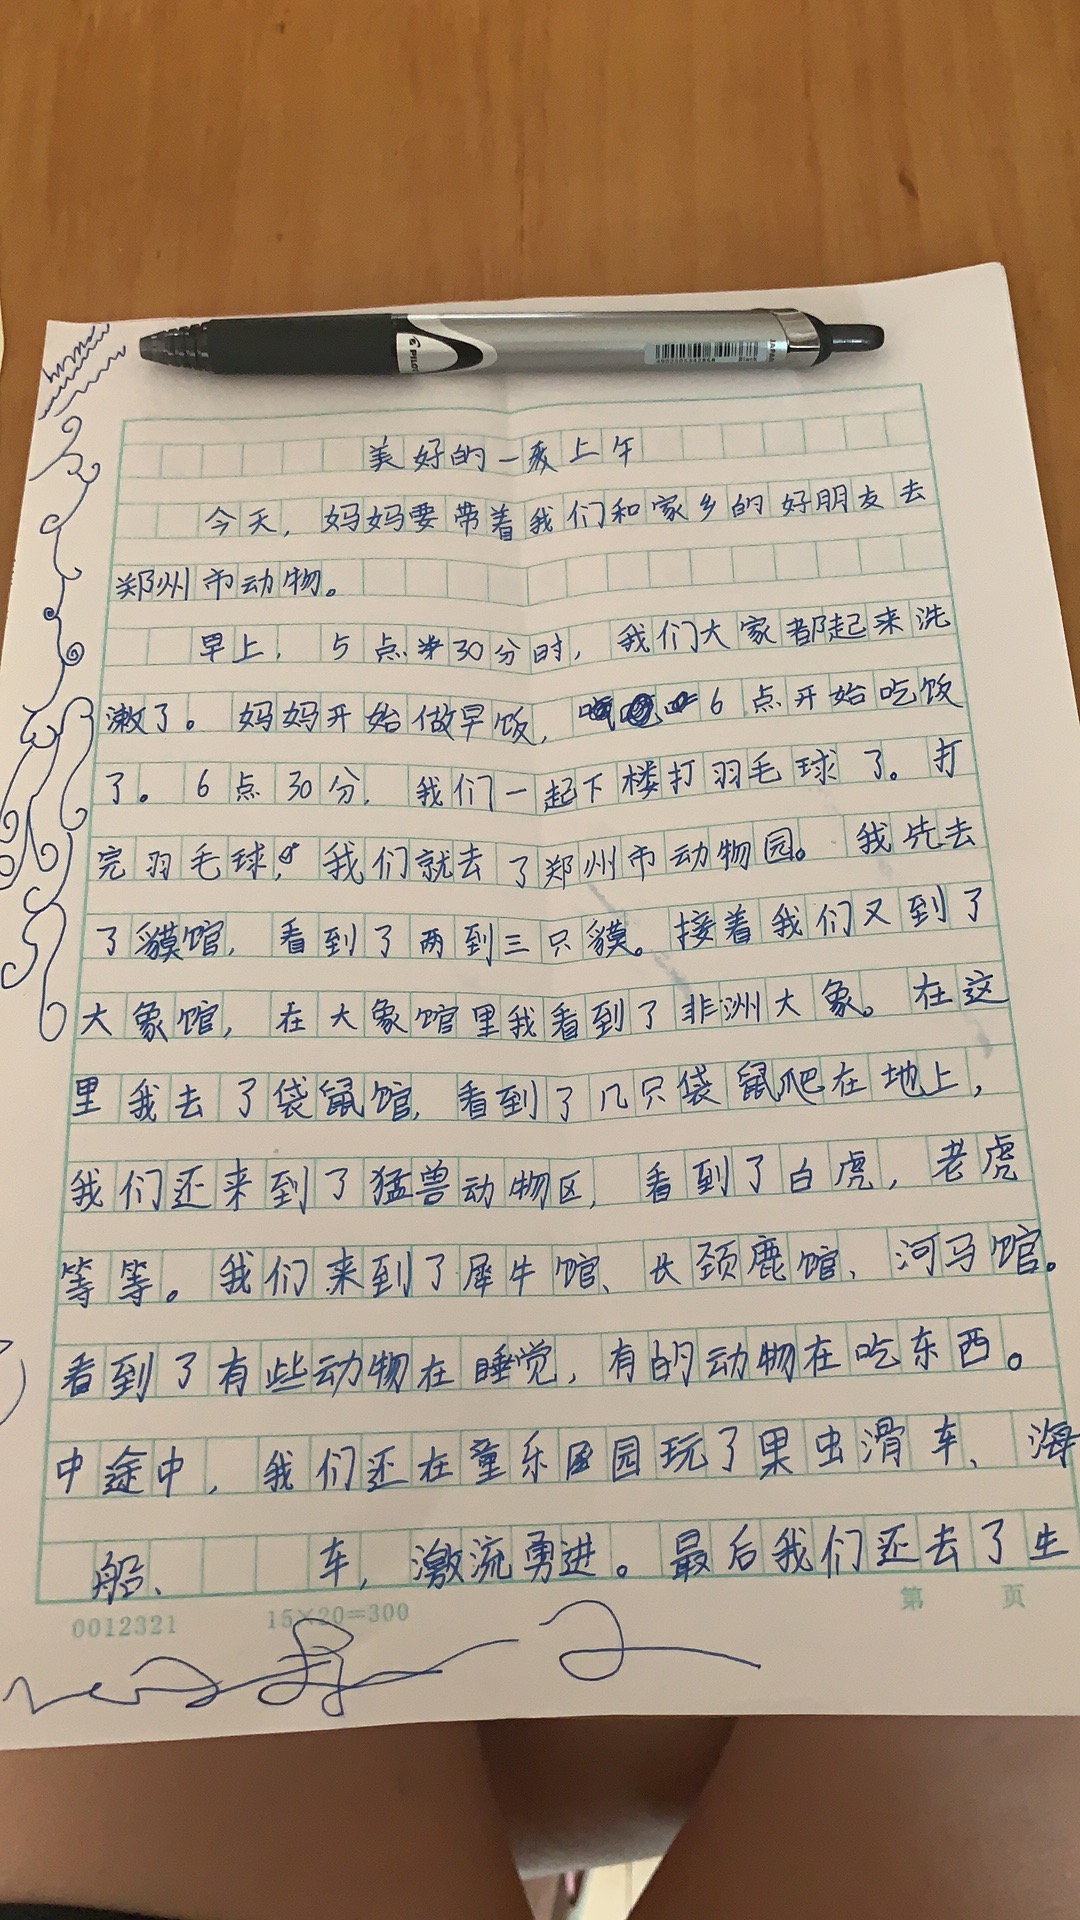 PILOT
JAPAN
Black
美好的一上午
今天，妈妈要带着我们和家乡的好朋友去
郑州市动物。
早上，5点30分时，我们大家都起来洗
漱了。妈妈开始做早饭，6点开始吃饭
了。6点30分，我们一起下楼打羽毛球了。打
完羽毛球，我们就去了郑州市动物园。我先去
了貘馆，看到了两到三只貘。接着我们又到了
大象馆，在大象馆里我看到了非洲大象。在这
里我去了袋鼠馆，看到了几只袋鼠爬在地上，
我们还来到了猛兽动物区，看到了白虎，老虎
等等。我们来到了犀牛馆、长颈鹿馆、河马馆。
看到了有些动物在睡觉，有的动物在吃东西。
中途中，我们还在童乐园玩了果虫滑车、海
船、 车，激流勇进。最后我们还去了生
0012321 15×20=300 第 页